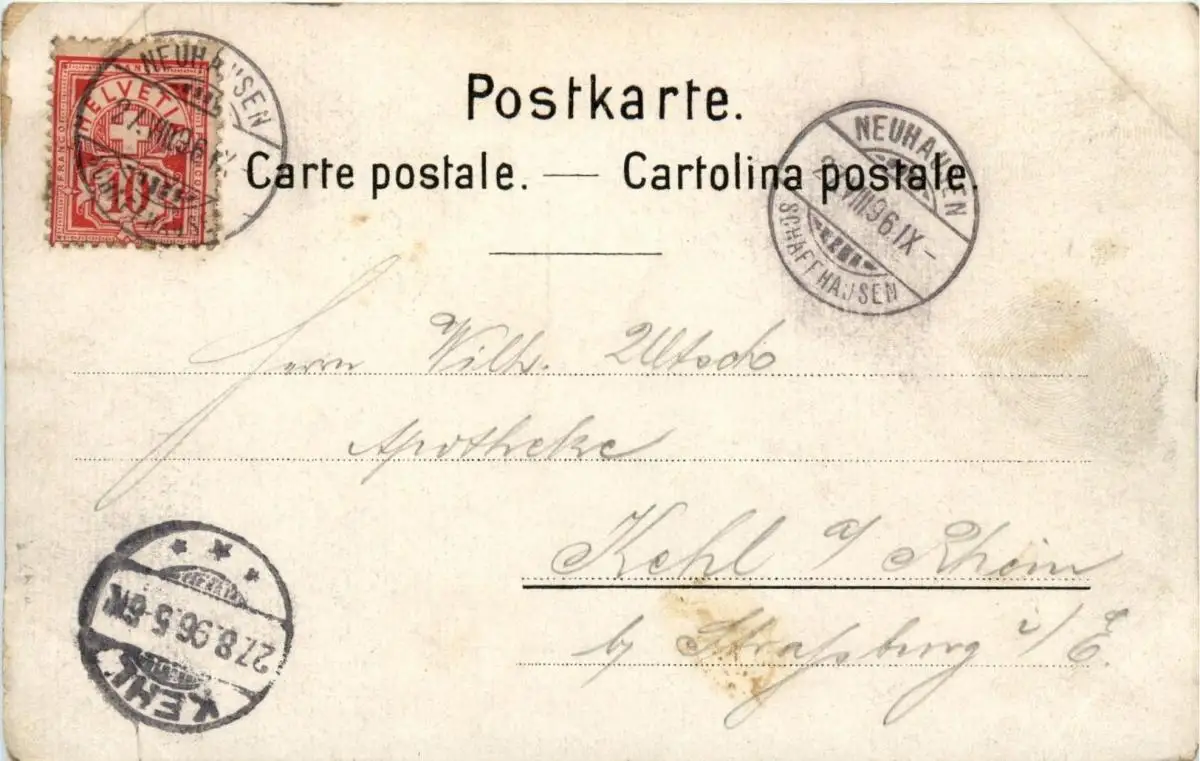 HELVETIA
FRANCO
10
NEUHAUSEN
27.VIII.96.IX
Postkarte.
Carte postale. — Cartolina postale.
NEUHAUSEN
VIII.96.IX–
SCHAFFHAUSEN
Herrn Wilh. Ultsch
Apotheke
Kehl a/ Rhein
by Straßburg i/E.
27.8.96.5-6N.
KEHL